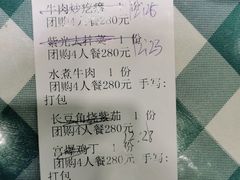 牛肉炒疙瘩 1 份
团购4人餐280元
1份
团购4人餐280元
水煮牛肉 1 份
团购4人餐280元 手写:
打包
长豆角烧茄 1 份
团购4人餐280元 手写:
打包
宫爆鸡丁 1 份
团购4人餐280元